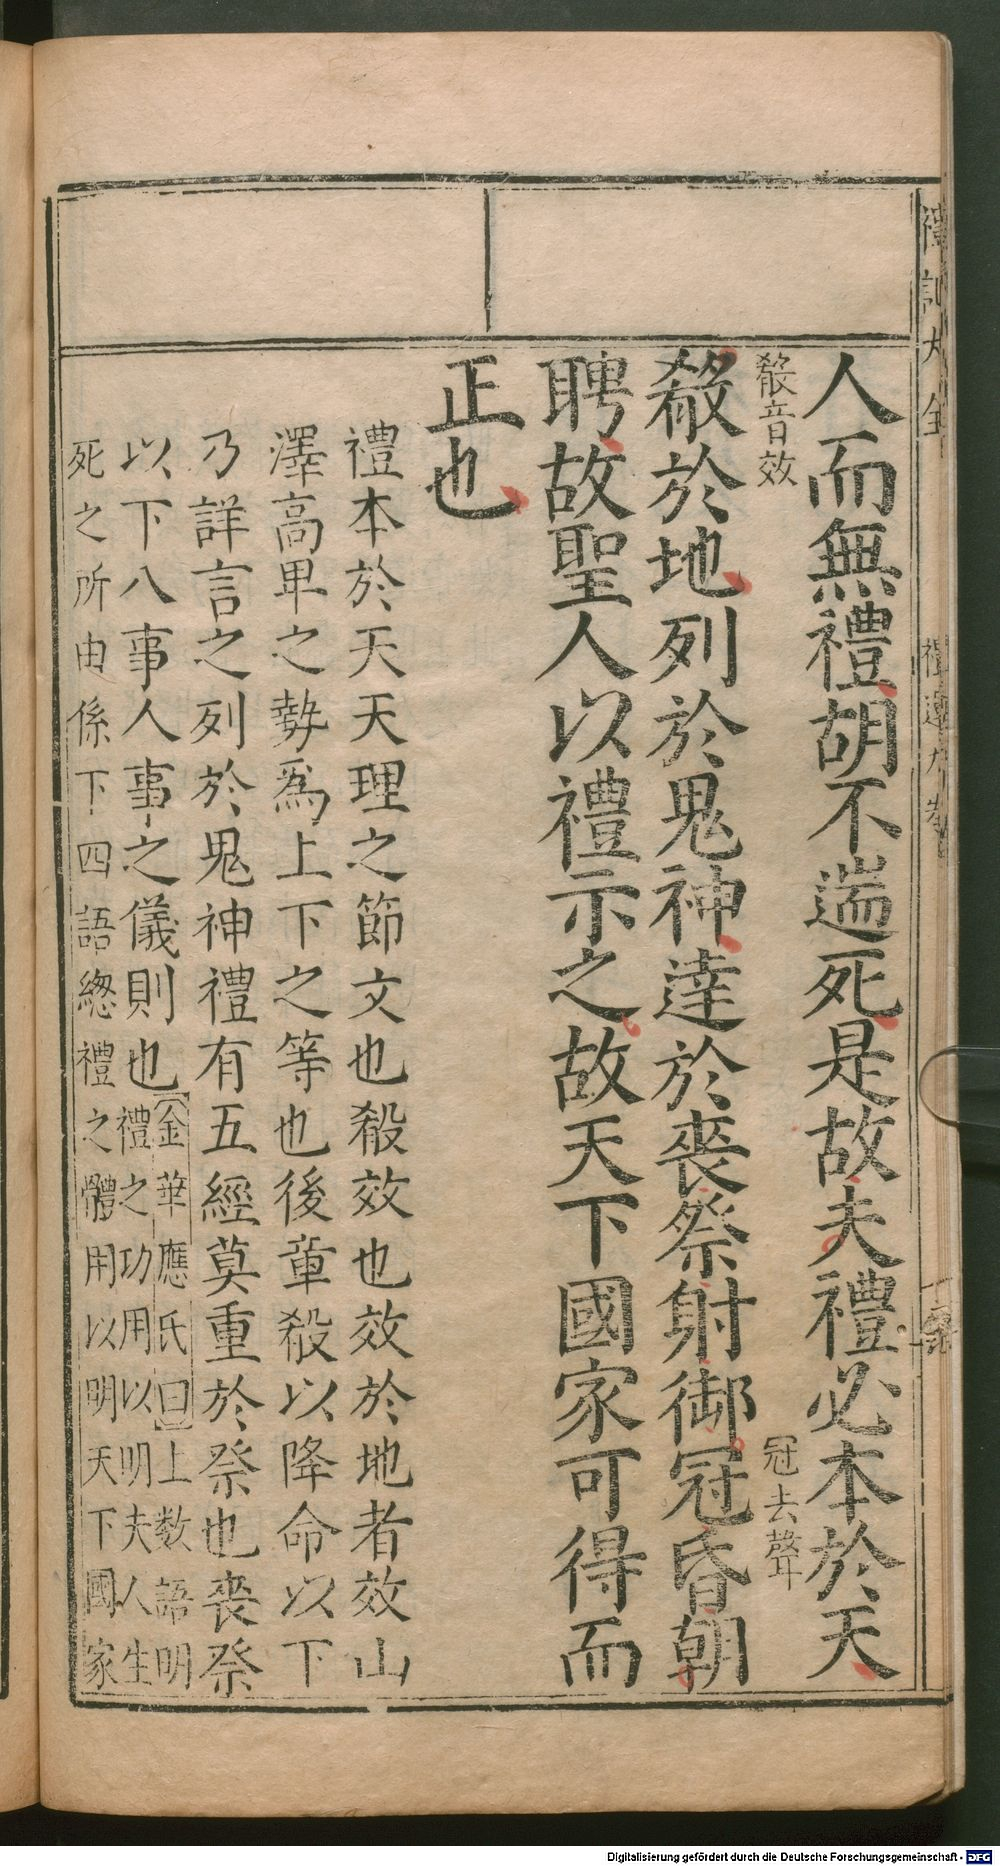 禮記大全
禮運九卷
人而無禮胡不遄死是故夫禮必本於天
殽音效
冠去聲
殽於地列於鬼神達於喪祭射御冠昏朝
聘故聖人以禮示之故天下國家可得而
正也
禮本於天天理之節文也殽效也效於地者效山
澤高卑之勢爲上下之等也後章殽以降命以下
乃詳言之列於鬼神禮有五經莫重於祭也喪祭
以下八事人事之儀則也
金華應氏曰上數語明
禮之功用以明夫人生
死之所由係下四語緫禮之體用以明天下國家
Digitalisierung gefördert durch die Deutsche Forschungsgemeinschaft - DFG